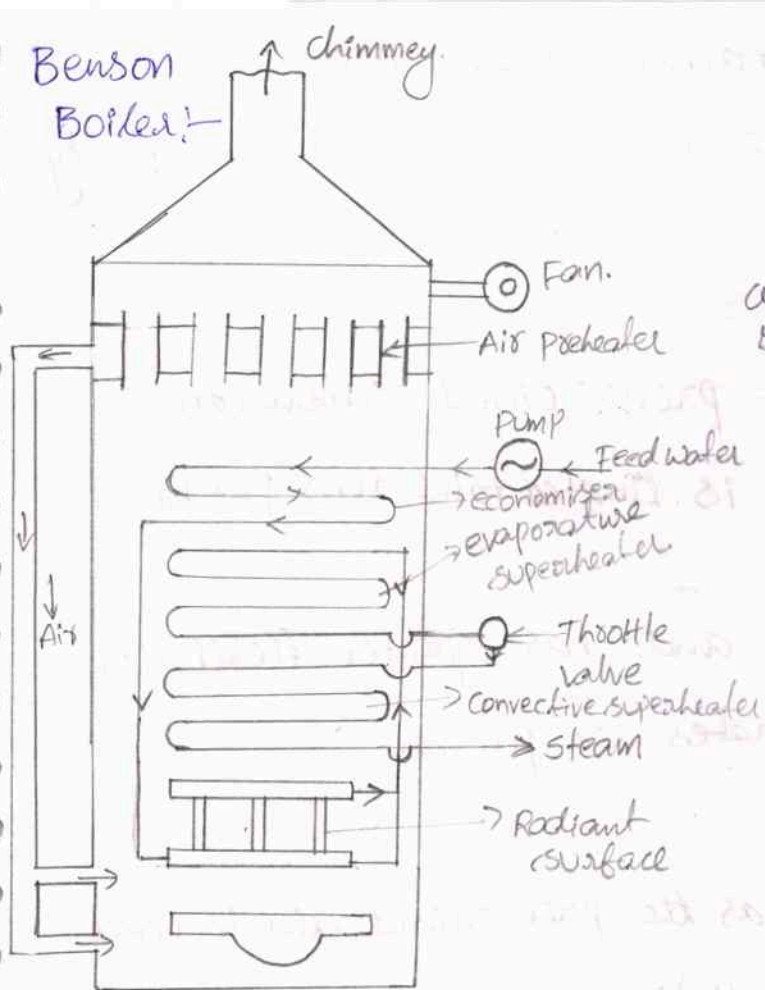 Benson
Boiler:-
chimmey.
Fan.
Air preheater
PUMP
Feed water
economiser
evaporature
superheater
Air
Throttle
valve
Convective superheater
Steam
Radiant
surface